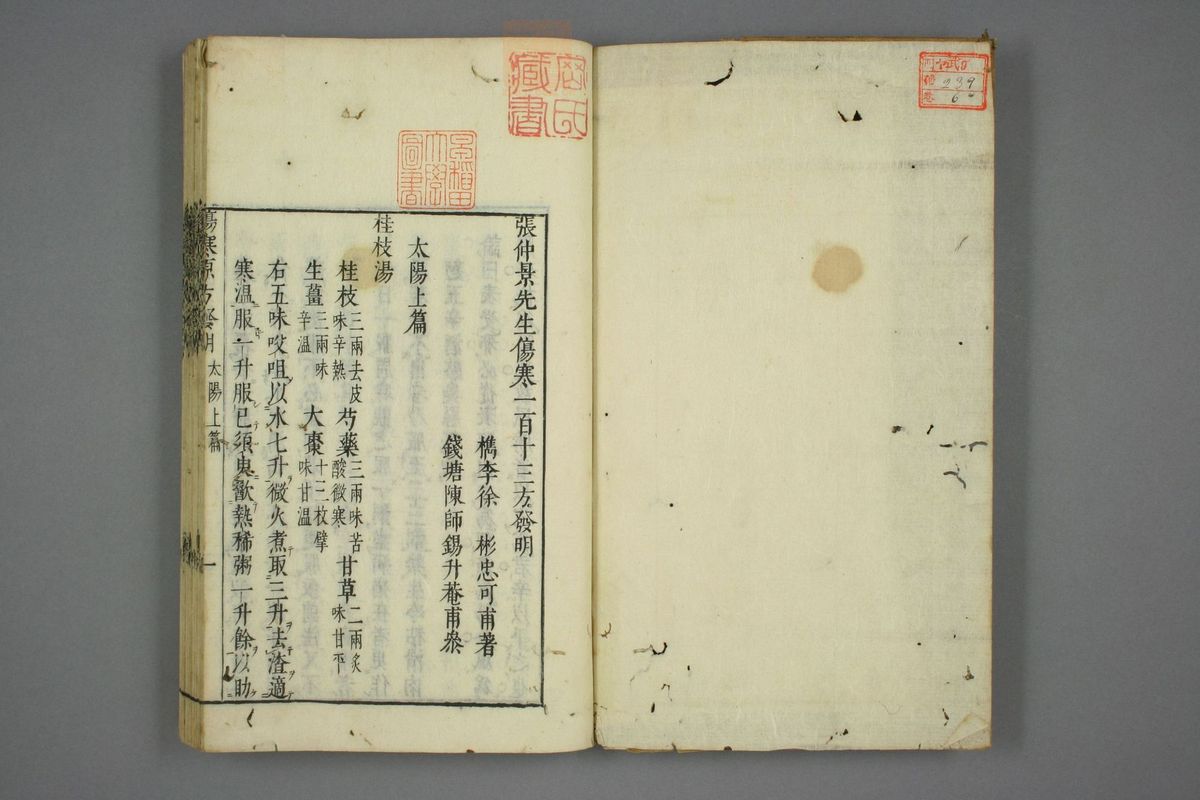 張仲景先生傷寒一百十三方發明
檇李徐 彬忠可甫著
錢塘陳師錫升菴甫叅
太陽上篇
桂枝湯
桂枝三兩去皮味辛熱 芍藥三兩味苦酸微寒 甘草二兩炙味甘平
生薑三兩味辛溫 大棗十二枚擘味甘溫
右五味㕮咀以水七升微火煮取三升去渣適
寒溫服一升服已須臾歠熱稀粥一升餘以助
傷寒原方發明 太陽上篇 一
藏書
早稲田大學圖書
239
6